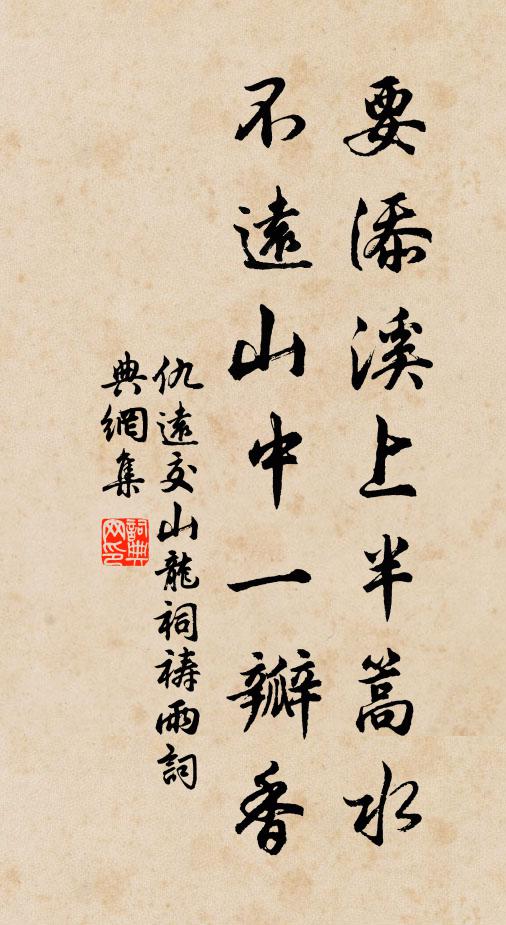 要添溪上半蒿水
不遠山中一瓣香
仇遠交山龍祠禱雨詞
典網集
詞典網印